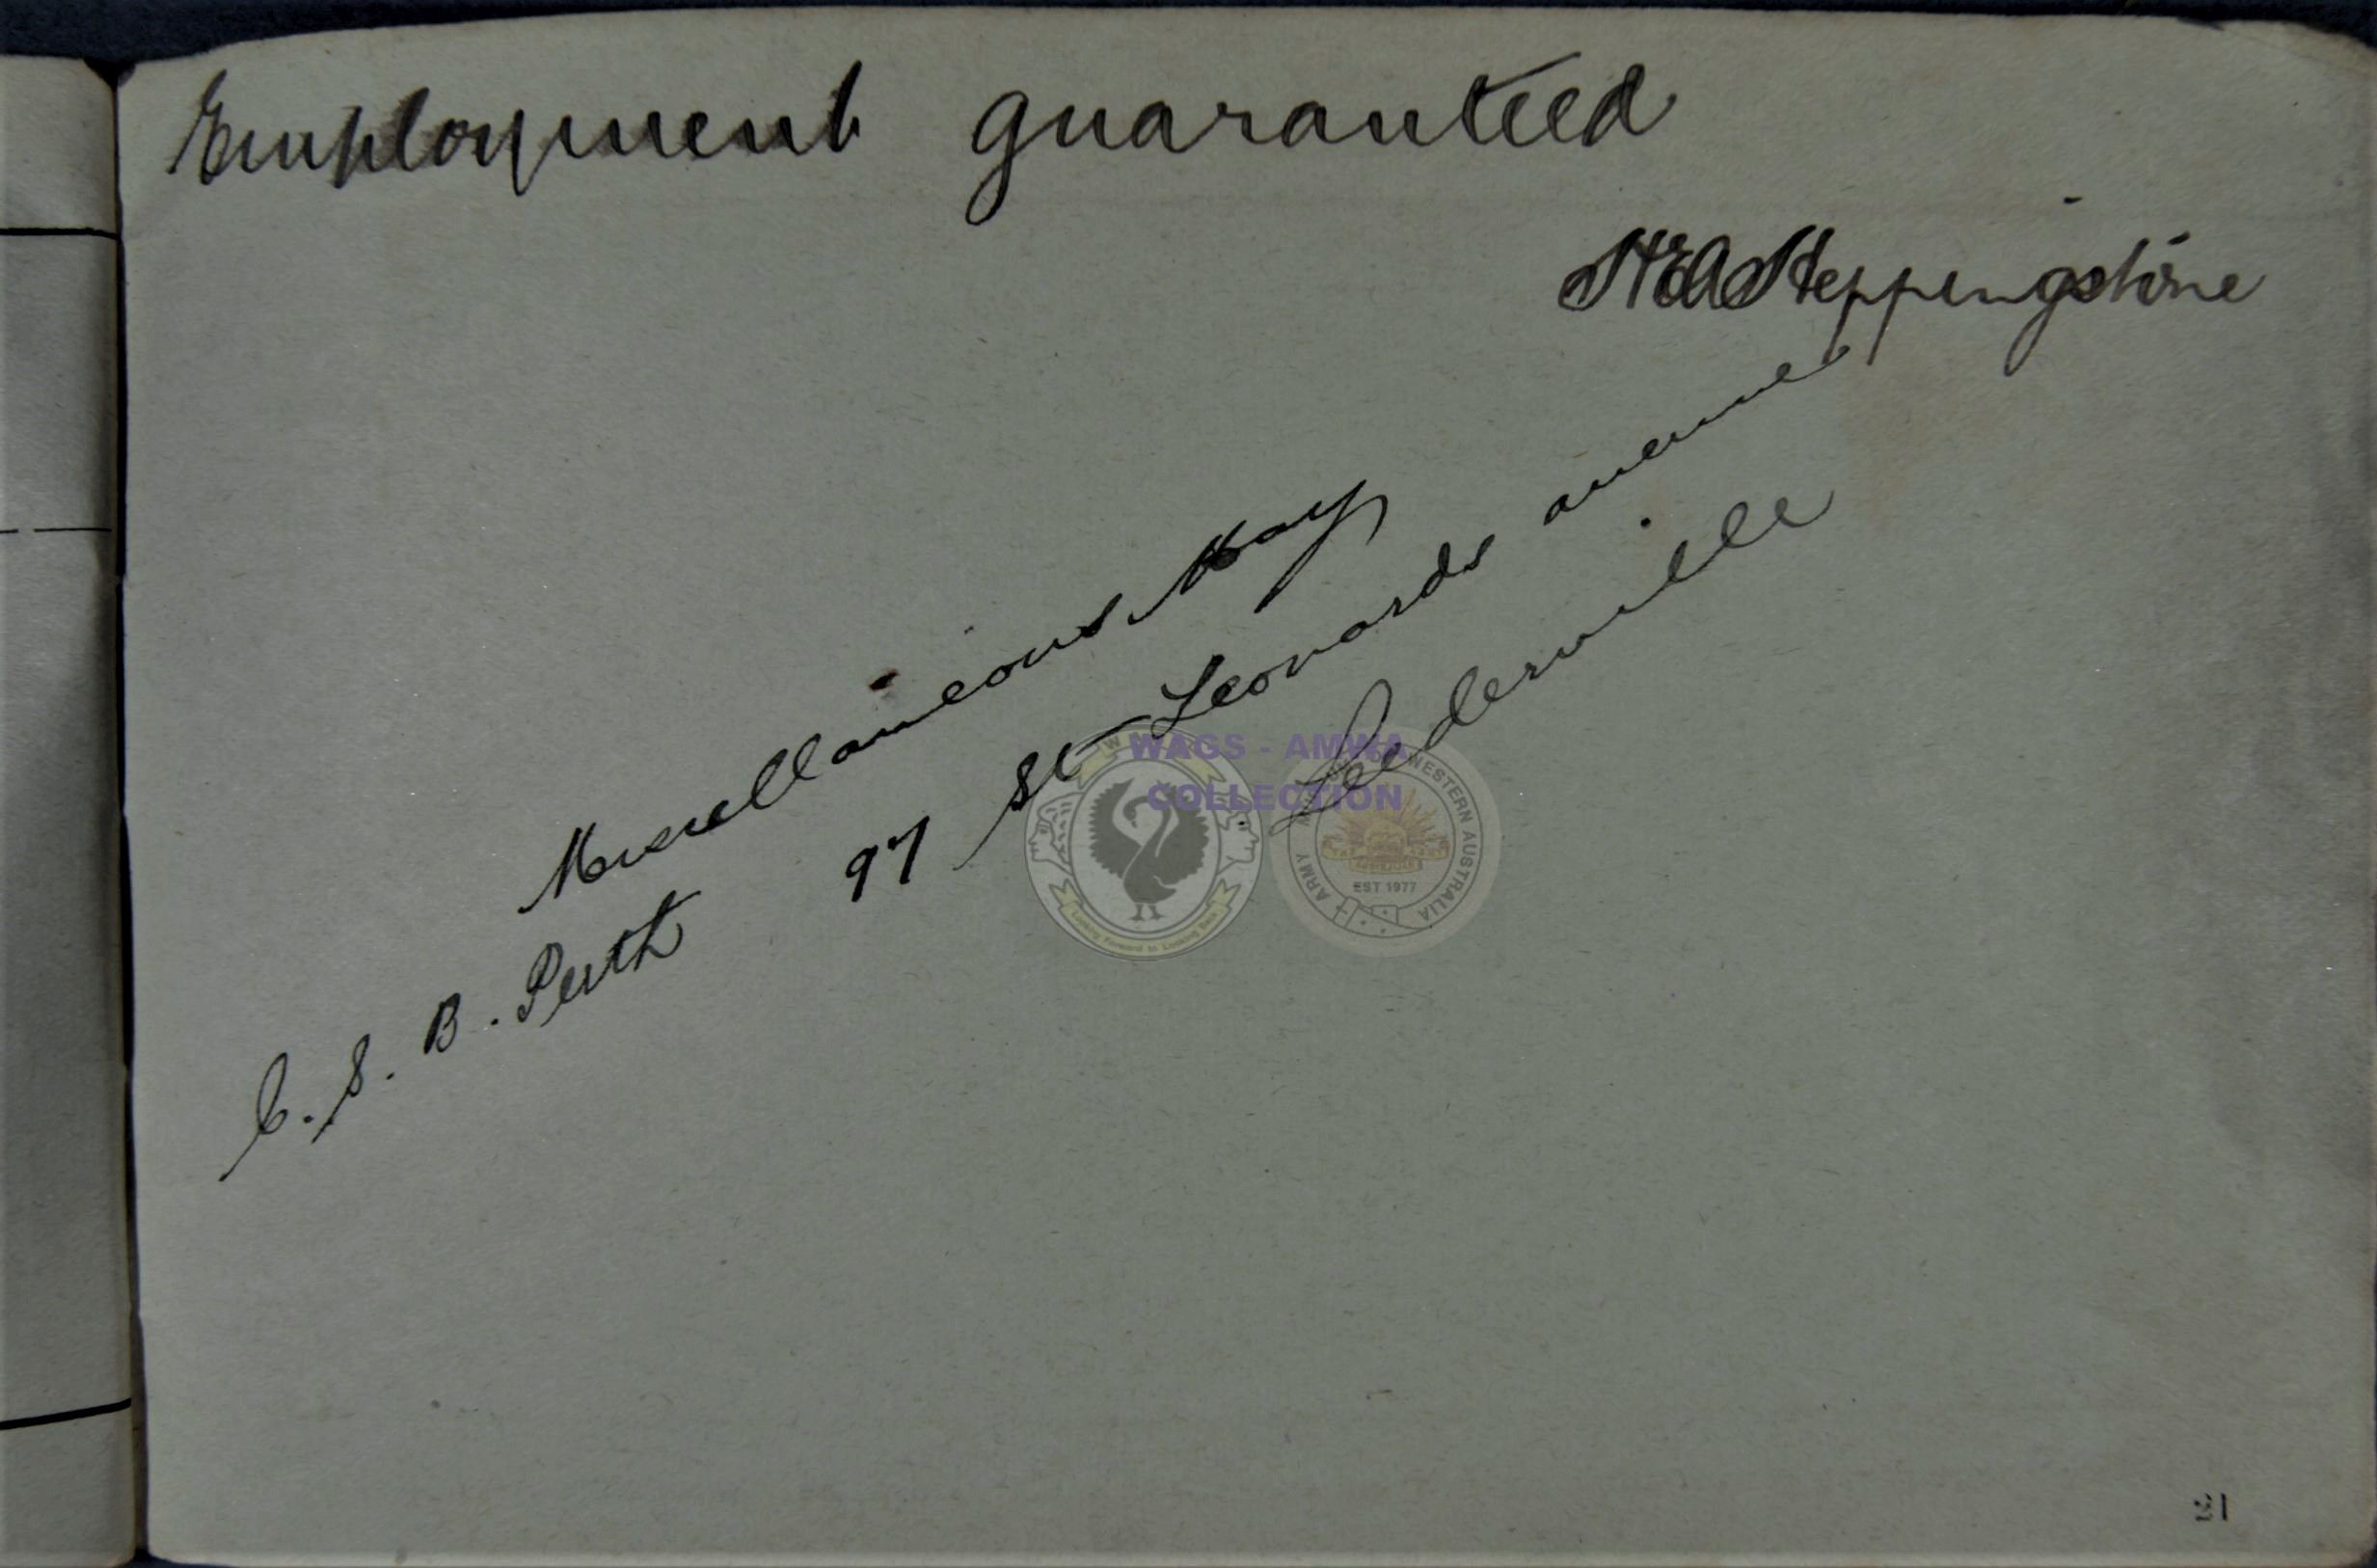 Employment guaranteed
H E A Heppingstone
Miscellaineous May
C. S. B. Perth
97 St Leonards avenue
Leederville
WAGS - AMWA
COLLECTION
WESTERN AUSTRALIA
ARMY
EST 1977
Looking Forward to Looking Back
21